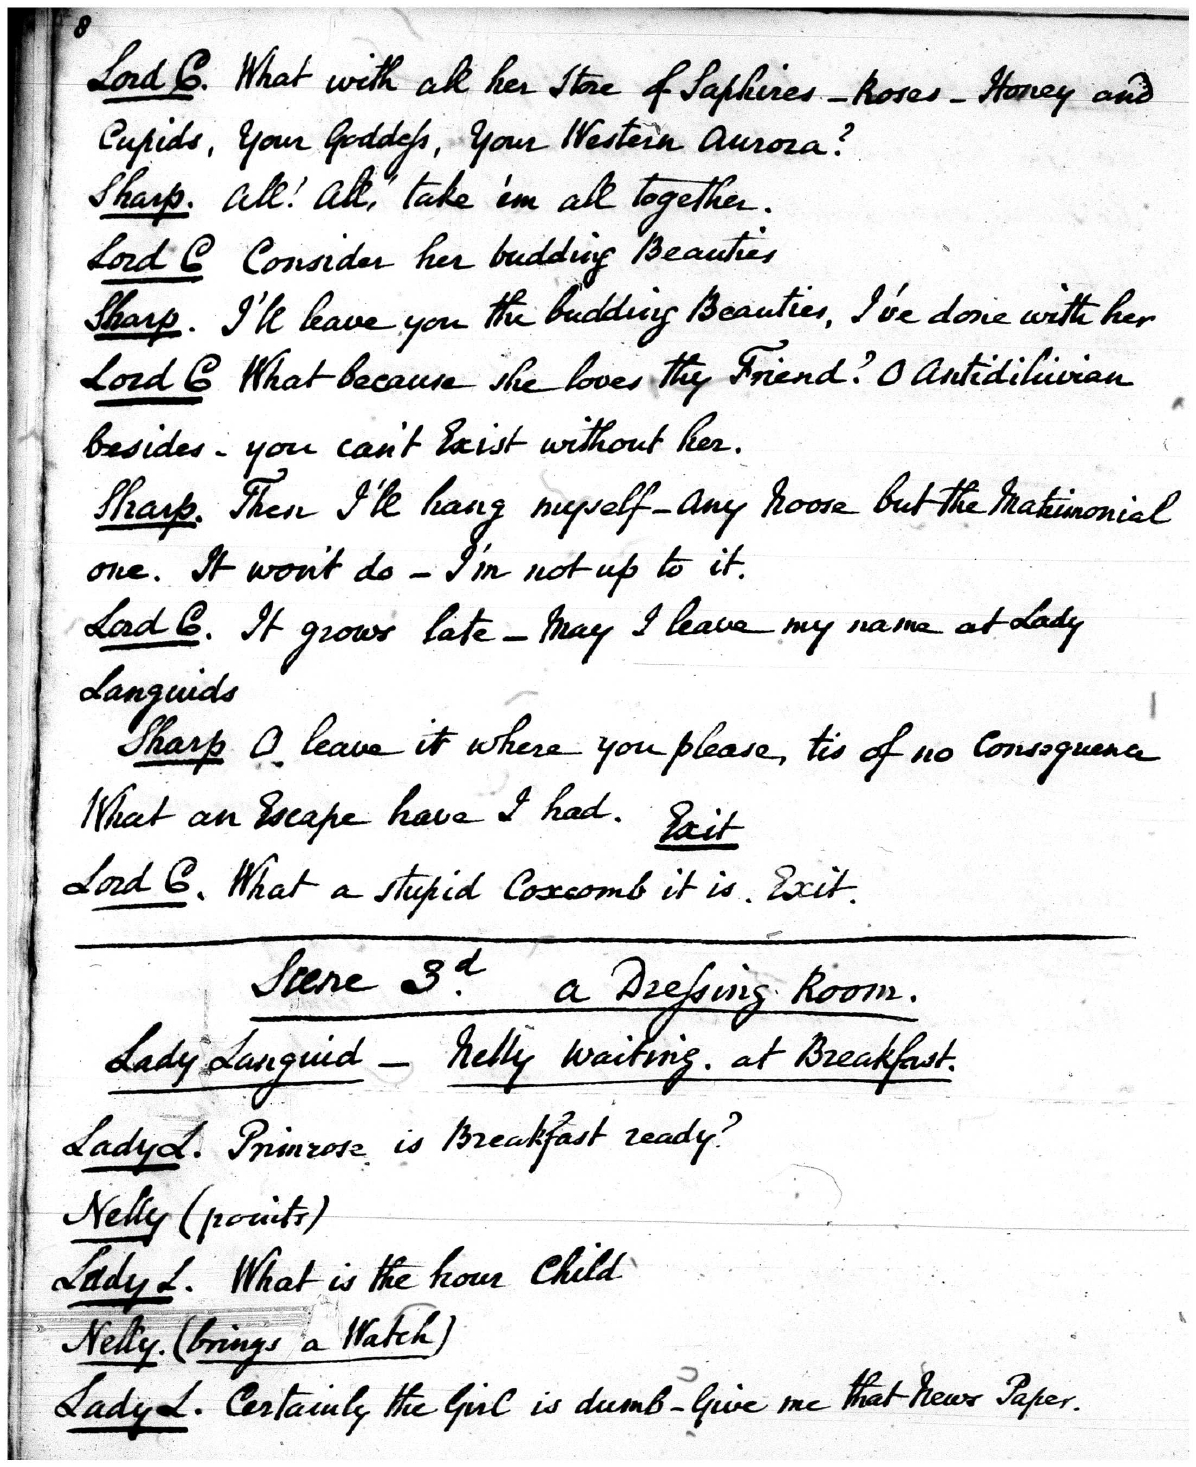 8
Lord C. What with all her Store of Saphires - Roses - Honey and
Cupids, Your Goddess, Your Western Aurora?
Sharp. All! All, take 'em all together.
Lord C Consider her budding Beauties
Sharp. I'll leave you the budding Beauties, I've done with her
Lord C What because she loves thy Friend? O Antidiluvian
besides - you can't Exist without her.
Sharp. Then I'll hang myself - Any Noose but the Matrimonial
one. It won't do - I'm not up to it.
Lord C. It grows late - May I leave my name at Lady
Languids
Sharp O leave it where you please, tis of no Consequence
What an Escape have I had. Exit
Lord C. What a stupid Coxcomb it is. Exit.
Scene 3.d a Dressing Room.
Lady Languid - Nelly waiting. at Breakfast.
Lady L. Primrose is Breakfast ready?
Nelly (points)
Lady L. What is the hour Child
Nelly. (brings a Watch)
Lady L. Certainly the Girl is dumb - Give me that News Paper.